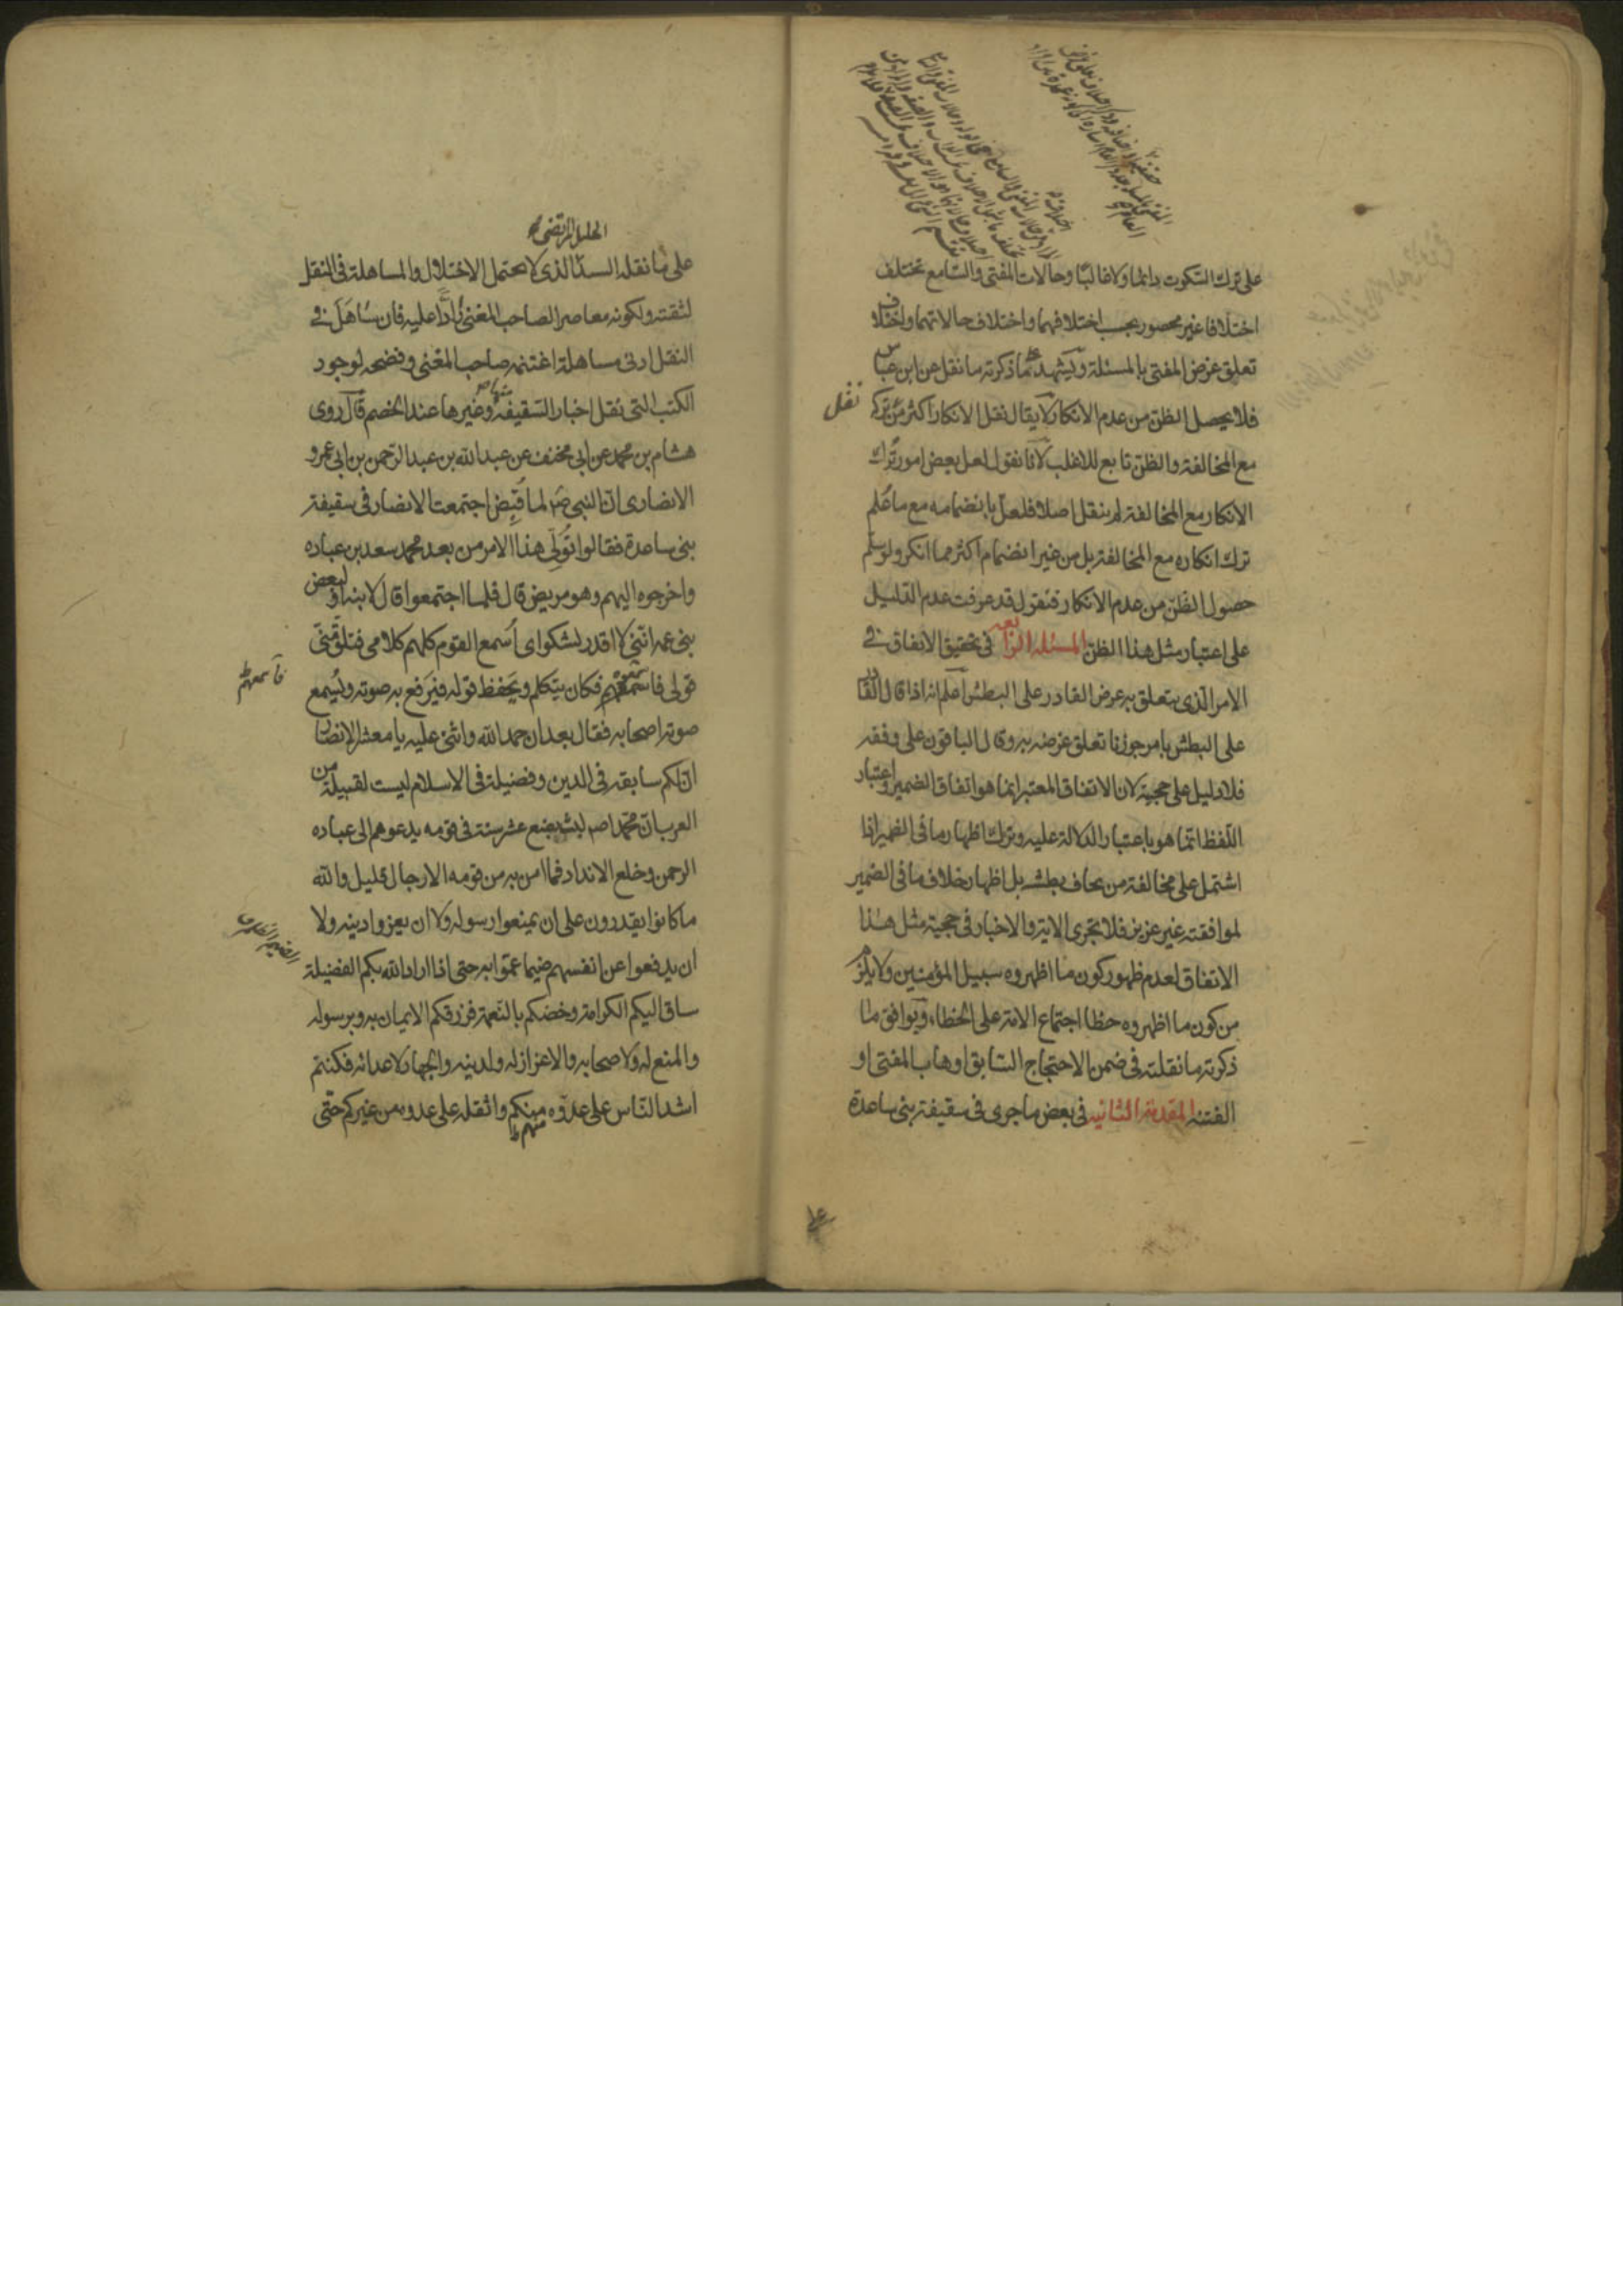 على ترك السكوت دائما ولا غالبا وحالات المفتي والسامع تختلف
اختلافا غير محصور بحسب اختلافهما واختلاف حالاتهما واختلاف
تعلق غرض المفتي بالمسئلة ويشهد بما ذكرته ما نقل عن ابن عباس
فلا يحصل الظن من عدم الانكار لا يقال نقل الانكار اكثر من تركه
نقل
مع المخالفة والظن تابع للاغلب لانا نقول لعل بعض امور ترك
الانكار مع المخالفة لم ينقل اصلا فلعل بانضمامه مع ما علم
ترك انكاره مع المخالفة بل من غير انضمام اكثر مما انكر ولو سلم
حصول الظن من عدم الانكار فنقول قد عرفت عدم الدليل
على اعتبار مثل هذا الظن المسئلة الرابعة في تحقيق الاتفاق في
الامر الذي يتعلق به غرض القادر على البطش اعلم انه اذا قال القادر
على البطش بامر جوزنا تعلق غرضه به وقال الباقون على وفقه
فلا دليل على حجيته لان الاتفاق المعتبر انما هو اتفاق الضمير واعتبار
اللفظ انما هو باعتبار الدلالة عليه وترك اظهار ما في الضمير اذا
اشتمل على مخالفة من يخاف بطشه بل اظهار خلاف ما في الضمير
لموافقته غير عزيز فلا تجري الاية والاخبار في حجية مثل هذا
الاتفاق لعدم ظهور كون ما اظهروه سبيل المؤمنين ولا يلزم
من كون ما اظهروه خطا اجتماع الامة على الخطاء ويوافق ما
ذكرته ما نقلته في ضمن الاحتجاج السابق اوهاب المفتي او
الفتنة المقدمة الثانية في بعض ما جرى في سقيفة بني ساعدة
الجليل المرتضى
على ما نقله السيد الذي لا يحتمل الاختلال والمساهلة في النقل
لثقته ولكونه معاصرا لصاحب المغني رادا عليه فان تساهل في
النقل ادنى مساهلة اغتنمه صاحب المغني وفضحه لوجود
الكتب التي نقل اخبار السقيفة وغيرها عند الخصم قال روى
هشام بن محمد عن ابي مخنف عن عبد الله بن عبد الرحمن بن ابي عمرو
الانصاري ان النبي ص لما قبض اجتمعت الانصار في سقيفة
بني ساعدة فقالوا تولى هذا الامر من بعد محمد سعد بن عباده
واخرجوه اليهم وهو مريض قال فلما اجتمعوا قال لابنه او لبعض
بني عمه انني لا اقدر لشكواي اسمع القوم كلهم كلامي فتلق مني
قولي فاسمعهم فكان يتكلم ويحفظ قوله فيرفع به صوته ويسمع
فاسمعهم
صوته اصحابه فقال بعد ان حمد الله واثنى عليه يا معشر الانصار
ان لكم سابقة في الدين وفضيلة في الاسلام ليست لقبيلة من
العرب ان محمدا ص لبث بضع عشر سنة في قومه يدعوهم الى عباده
الرحمن وخلع الانداد فما امن به من قومه الا رجال قليل والله
ما كانوا يقدرون على ان يمنعوا رسوله ولا ان يعزوا دينه ولا
ان يدفعوا عن انفسهم ضيما عموا به حتى اذا اراد الله بكم الفضيلة
ساق اليكم الكرامة وخصكم بالنعمة فرزقكم الايمان به وبرسوله
والمنع له ولاصحابه والاعزاز له ولدينه والجهاد لاعدائه فكنتم
اشد الناس على عدوه منكم واثقله على عدوه من غيركم حتى
منهم